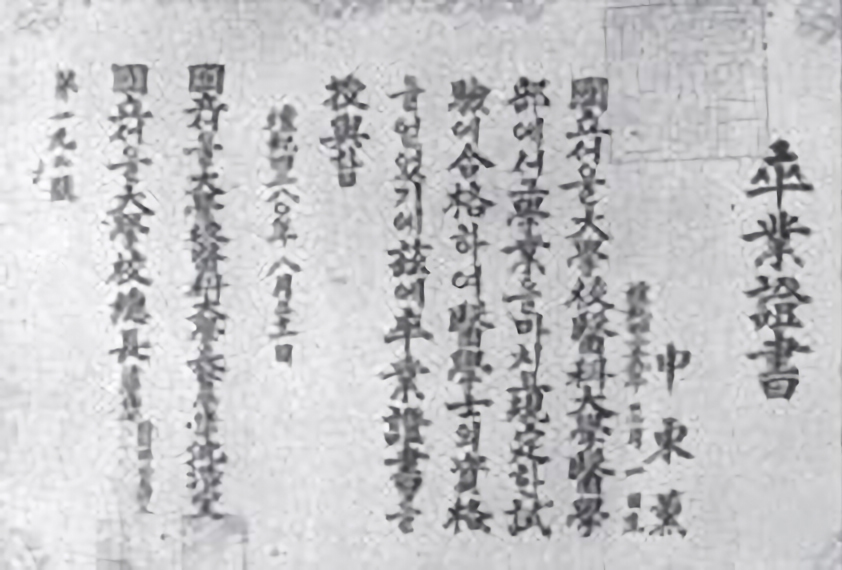 卒業證書
申東薰
月一日生
國立서울大學校醫科大學醫學
部에서學業을마치고規定한試
驗에合格하여醫學士의資格
을얻었기에玆에卒業證書를
授與함
檀紀四二八〇年 八月三十一日
國立서울大學校醫科大學長
國立서울大學校總長
第一九 號